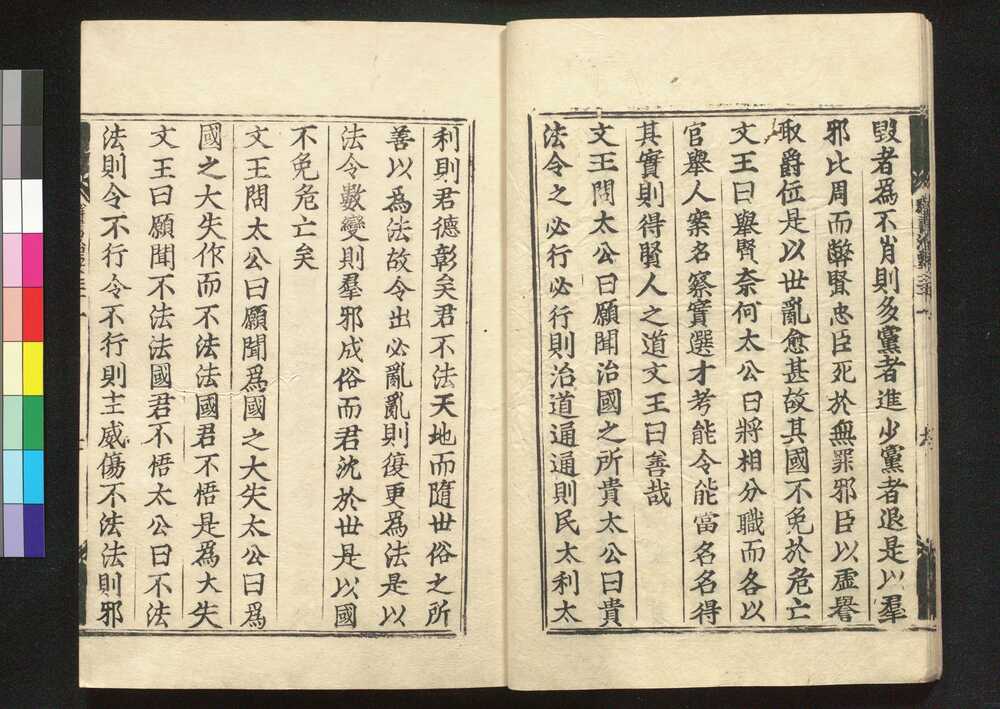 毀者爲不肖則多黨者進少黨者退是以羣
邪比周而蔽賢忠臣死於無罪邪臣以虛譽
取爵位是以世亂愈甚故其國不免於危亡
文王曰舉賢奈何太公曰將相分職而各以
官舉人案名察實選才考能令能當名名得
其實則得賢人之道文王曰善哉
文王問太公曰願聞治國之所貴太公曰貴
法令之必行必行則治道通通則民太利太
利則君德彰矣君不法天地而隨世俗之所
善以爲法故令出必亂亂則復更爲法是以
法令數變則羣邪成俗而君沈於世是以國
不免危亡矣
文王問太公曰願聞爲國之大失太公曰爲
國之大失作而不法法國君不悟是爲大失
文王曰願聞不法法國君不悟太公曰不法
法則令不行令不行則主威傷不法法則邪